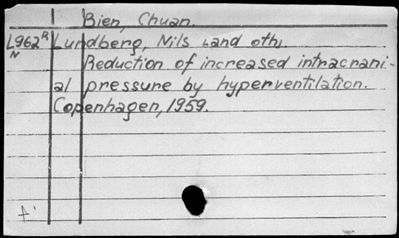 Bien, Chuan.
L962R Lundberg, Nils and oth.
N Reduction of increased intracrani-
al pressure by hyperventilation.
Copenhagen, 1959.
A'